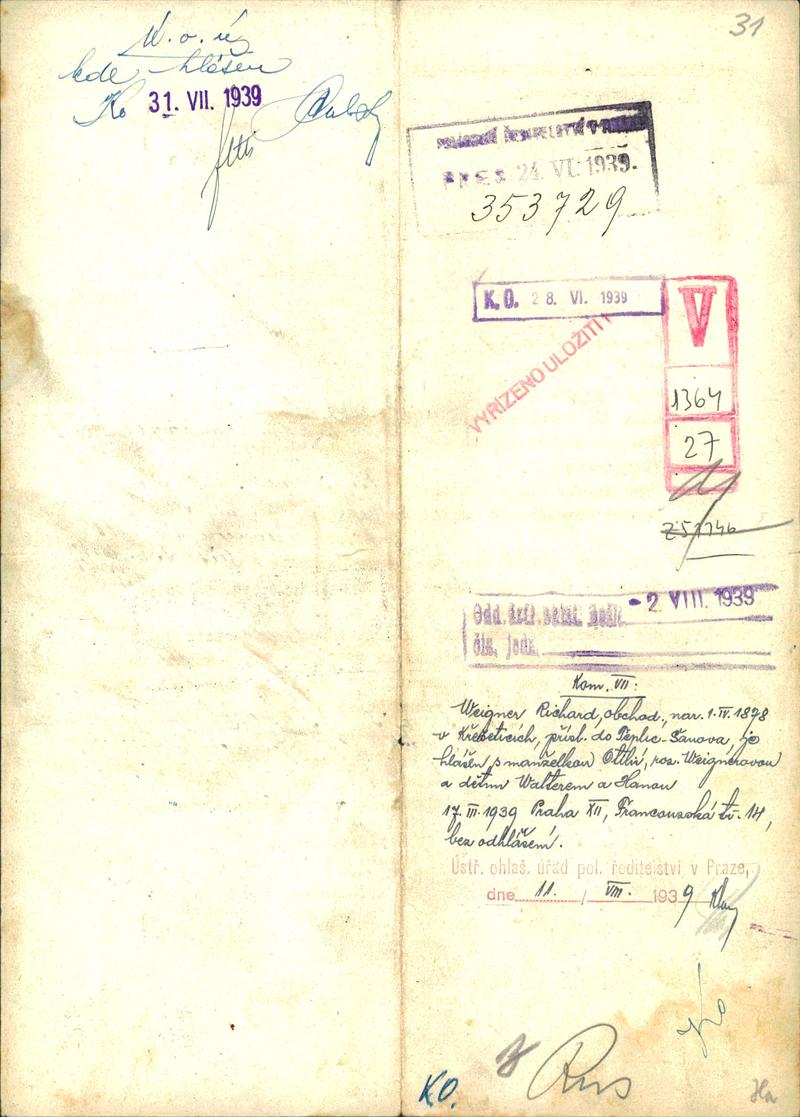 Ú. o. úř.
kde hlášen
Ko 31. VII. 1939
31
POLICEJNÍ ŘEDITELSTVÍ V PRAZE
PRES 24. VI. 1939.
353729
K. O. 28. VI. 1939
V
VYŘÍZENO ULOŽITI!
1364
27
Z51746
- 2 VIII. 1939
čís. jedn.
Kom. VII:
Weigner Richard, obchod., nar. 1. IV. 1898
v Křešeticích, přísl. do Teplic-Šanova, je
hlášen s manželkou Ottlií, roz. Weignerovou
a dětmi Walterem a Hanou
17. III. 1939 Praha XII, Francouzská tř. 14,
bez odhlášení.
Ústř. ohlaš. úřad pol. ředitelství v Praze,
dne 11. / VIII. 1939
K.O.